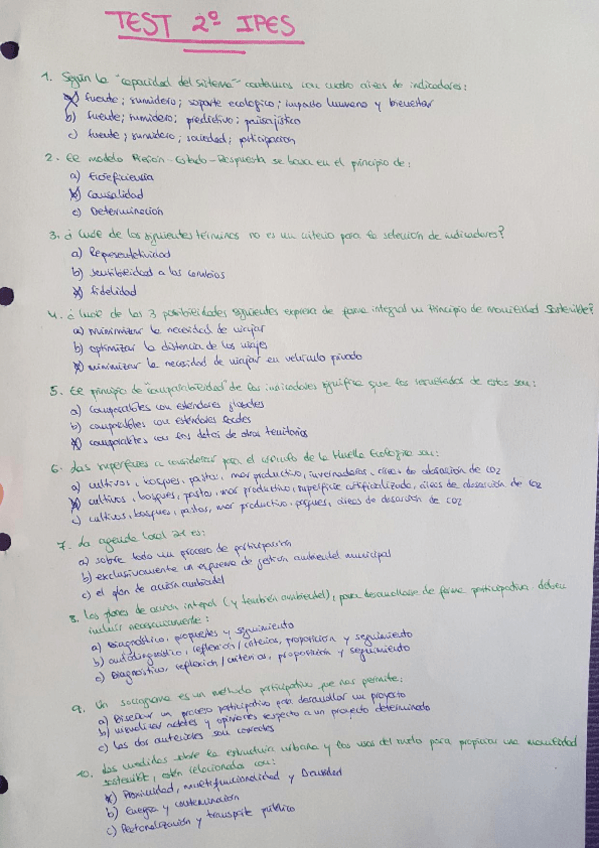 TEST 2º IPES
1. Según la "capacidad del sistema" contamos con cuatro áreas de indicadores:
a) fuente; sumidero; soporte ecológico; impacto humano y bienestar
b) fuente; sumidero; predictivo; paisajística
c) fuente; sumidero; sociedad; participación
2. El modelo Presión-Estado-Respuesta se basa en el principio de:
a) Ecoeficiencia
b) Causalidad
c) Determinación
3. ¿Cuál de los siguientes términos no es un criterio para la selección de indicadores?
a) Representatividad
b) Sensibilidad a los cambios
c) fidelidad
4. ¿Cuál de las 3 posibilidades siguientes expresa de forma integral un Principio de Movilidad Sostenible?
a) minimizar la necesidad de viajar
b) optimizar la distancia de los viajes
c) minimizar la necesidad de viajar en vehículo privado
5. El principio de "comparabilidad" de los indicadores significa que los resultados de estos son:
a) comparables con estándares globales
b) comparables con estándares locales
c) comparables con los datos de otros territorios
6. Las superficies a considerar para el cálculo de la Huella Ecológica son:
a) cultivos, bosques, pastos, mar productivo, invernaderos, áreas de absorción de CO2
b) cultivos, bosques, pastos, mar productivo, superficie artificializada, áreas de absorción de CO2
c) cultivos, bosques, pastos, mar productivo, parques, áreas de absorción de CO2
7. La agenda local 21 es:
a) sobre todo un proceso de participación
b) exclusivamente un esquema de gestión ambiental municipal
c) el plan de acción ambiental
8. Los planes de acción integral (y también ambiental), para desarrollarse de forma participativa deben
incluir necesariamente:
a) Diagnóstico, propuestas y seguimiento
b) autodiagnóstico, reflexión/criterios, proposición y seguimiento
c) Diagnóstico, reflexión/criterios, proposición y seguimiento
9. Un sociograma es un método participativo que nos permite:
a) Diseñar un proceso participativo para desarrollar un proyecto
b) visualizar actores y opiniones respecto a un proyecto determinado
c) Las dos anteriores son correctas
10. Las medidas sobre la estructura urbana y los usos del suelo para propiciar una movilidad
sostenible, están relacionadas con:
a) Proximidad, multifuncionalidad y Densidad
b) Energía y contaminación
c) Peatonalización y transporte público